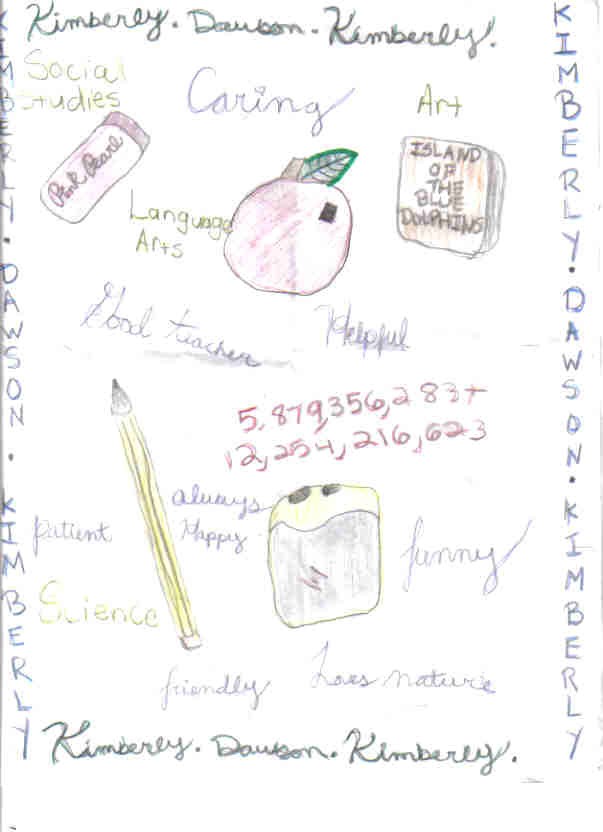 Kimberly. Dawson. Kimberly.
KIMBERLY. DAWSON. KIMBERLY
KIMBERLY. DAWSON. KIMBERLY
Social
Studies
Caring
Art
Pink Pearl
ISLAND
OF
THE
BLUE
DOLPHINS
Language
Arts
Good teacher
Helpful
5,879,356,283+
12,254,216,623
always
Happy
patient
funny
Science
friendly
Loves nature
Kimberly. Dawson. Kimberly.